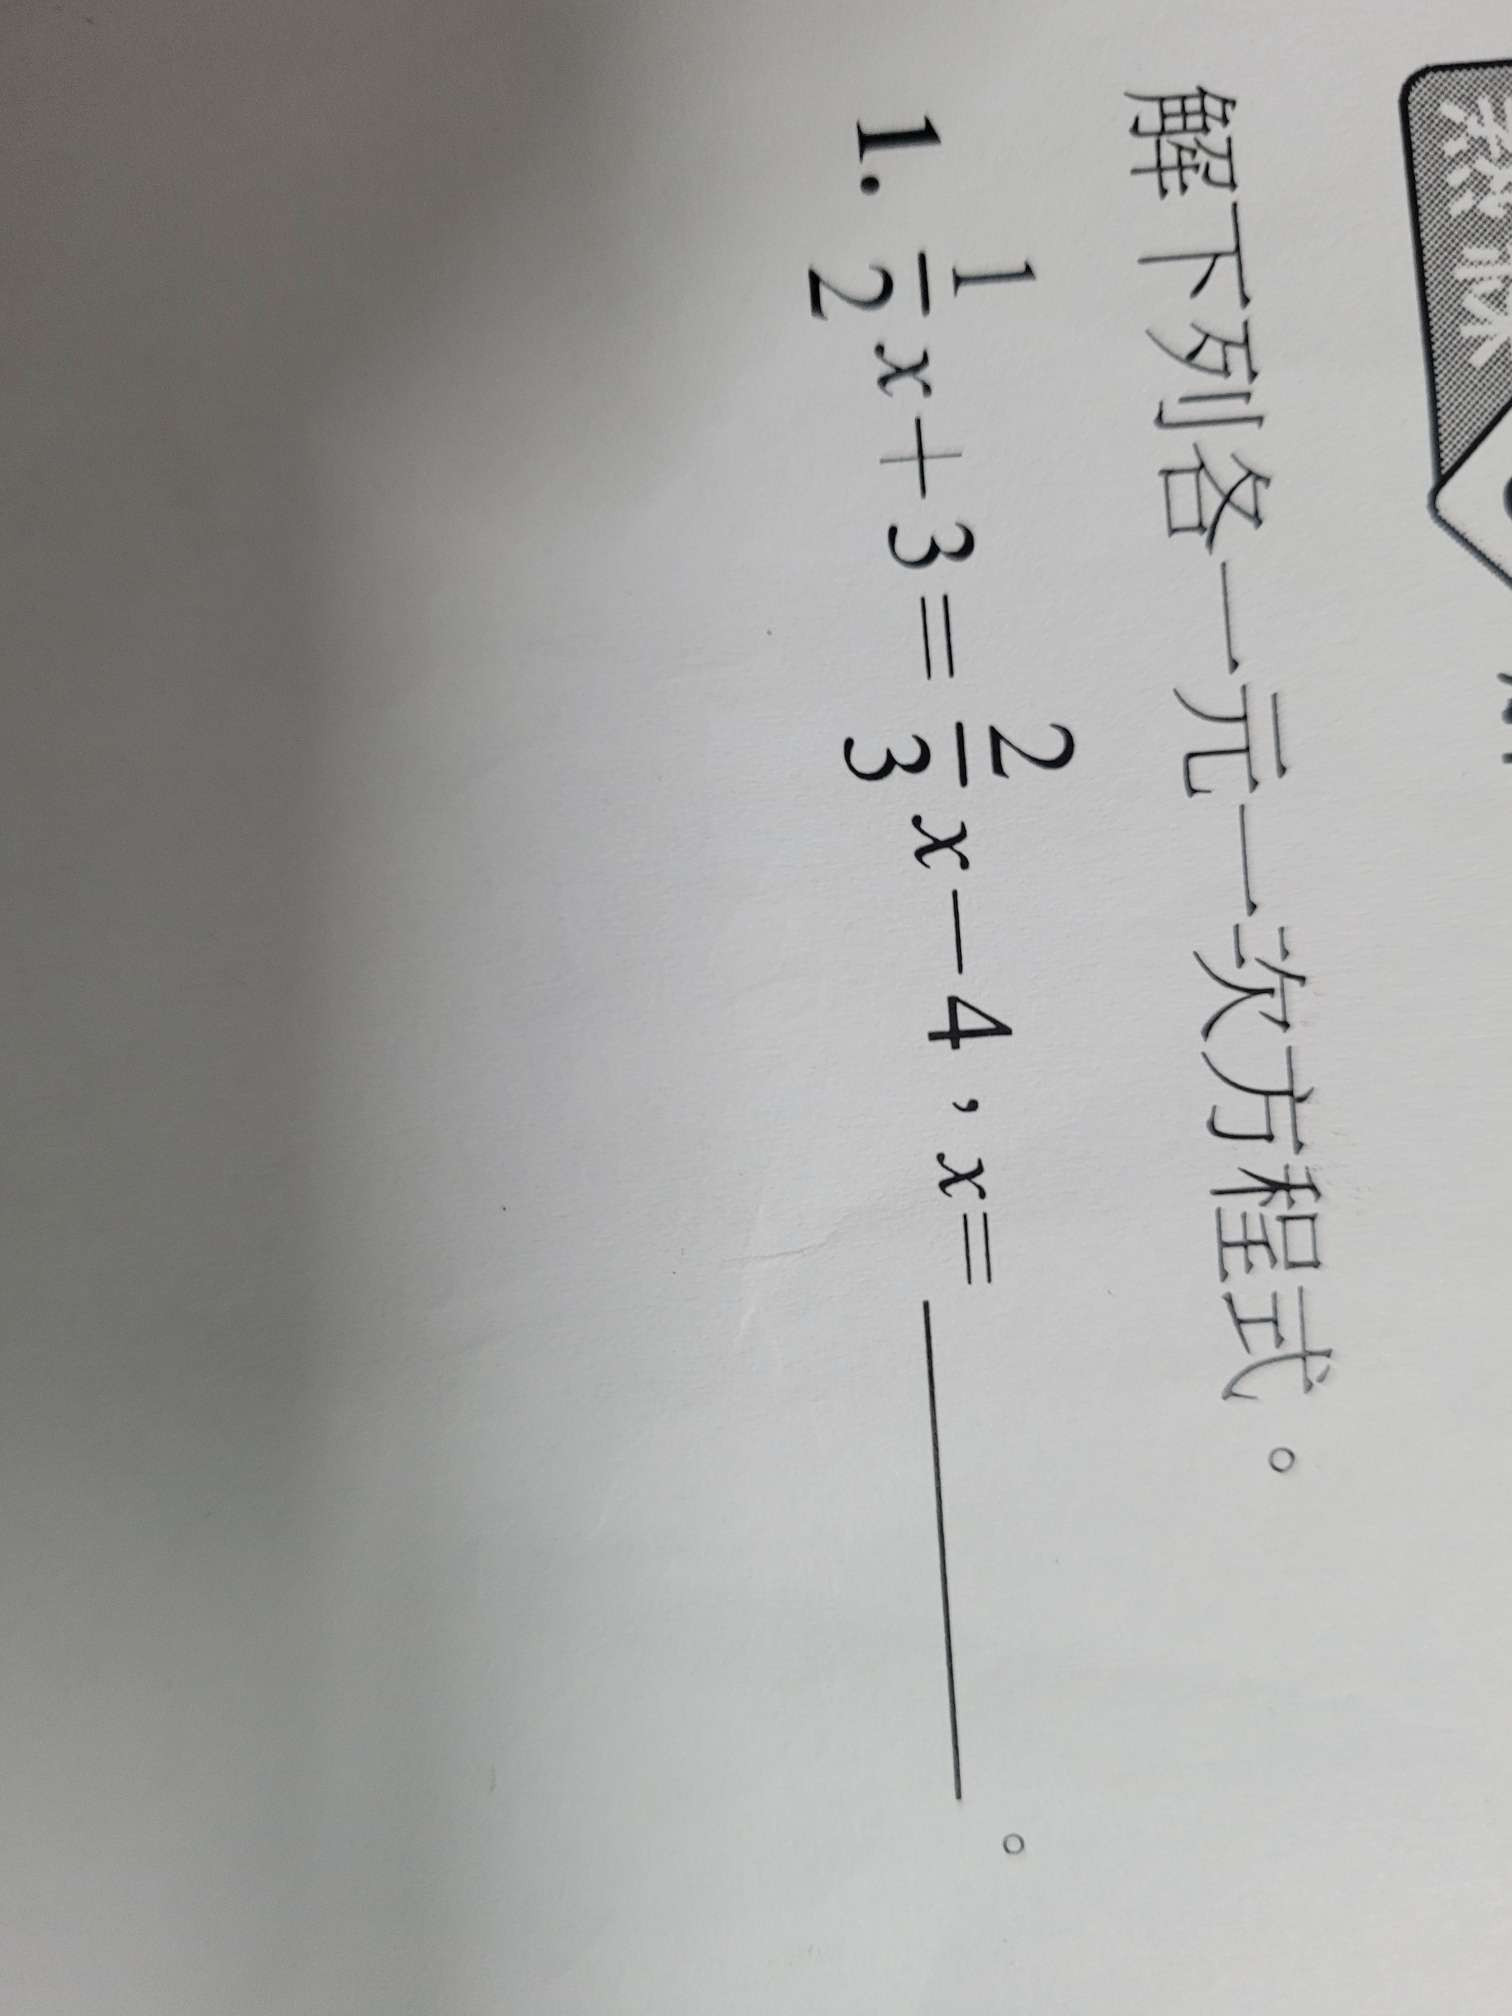 解下列各一元一次方程式。
1. \frac{1}{2}x+3=\frac{2}{3}x-4，x=______。